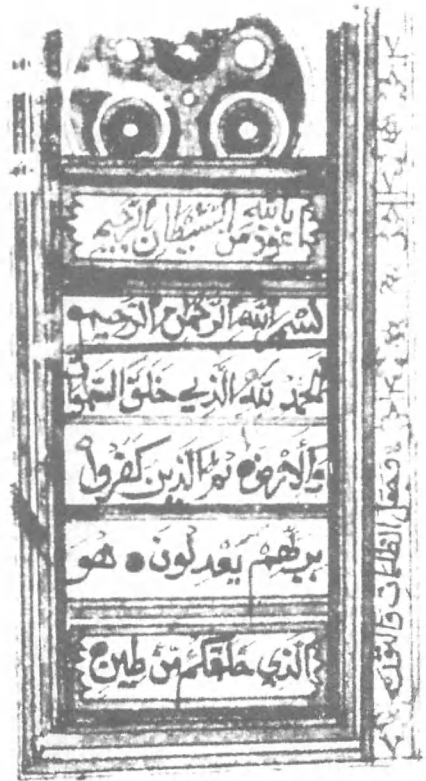 اعوذ بالله من الشيطان الرجيم
بسم الله الرحمن الرحيم
الحمد لله الذي خلق السموات
والأرض ثم الذين كفروا
بربهم يعدلون هو
الذي خلقكم من طين
وجعل الظلمات والنور